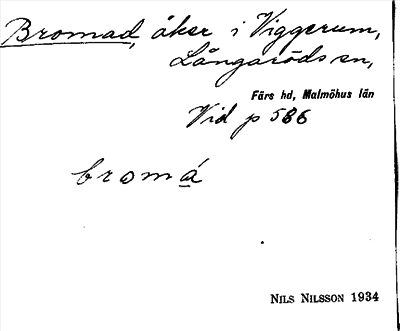 Bromad, åker i Viggerum,
Långaröds sn,
Färs hd, Malmöhus län
Vid p 586
bromá
NILS NILSSON 1934